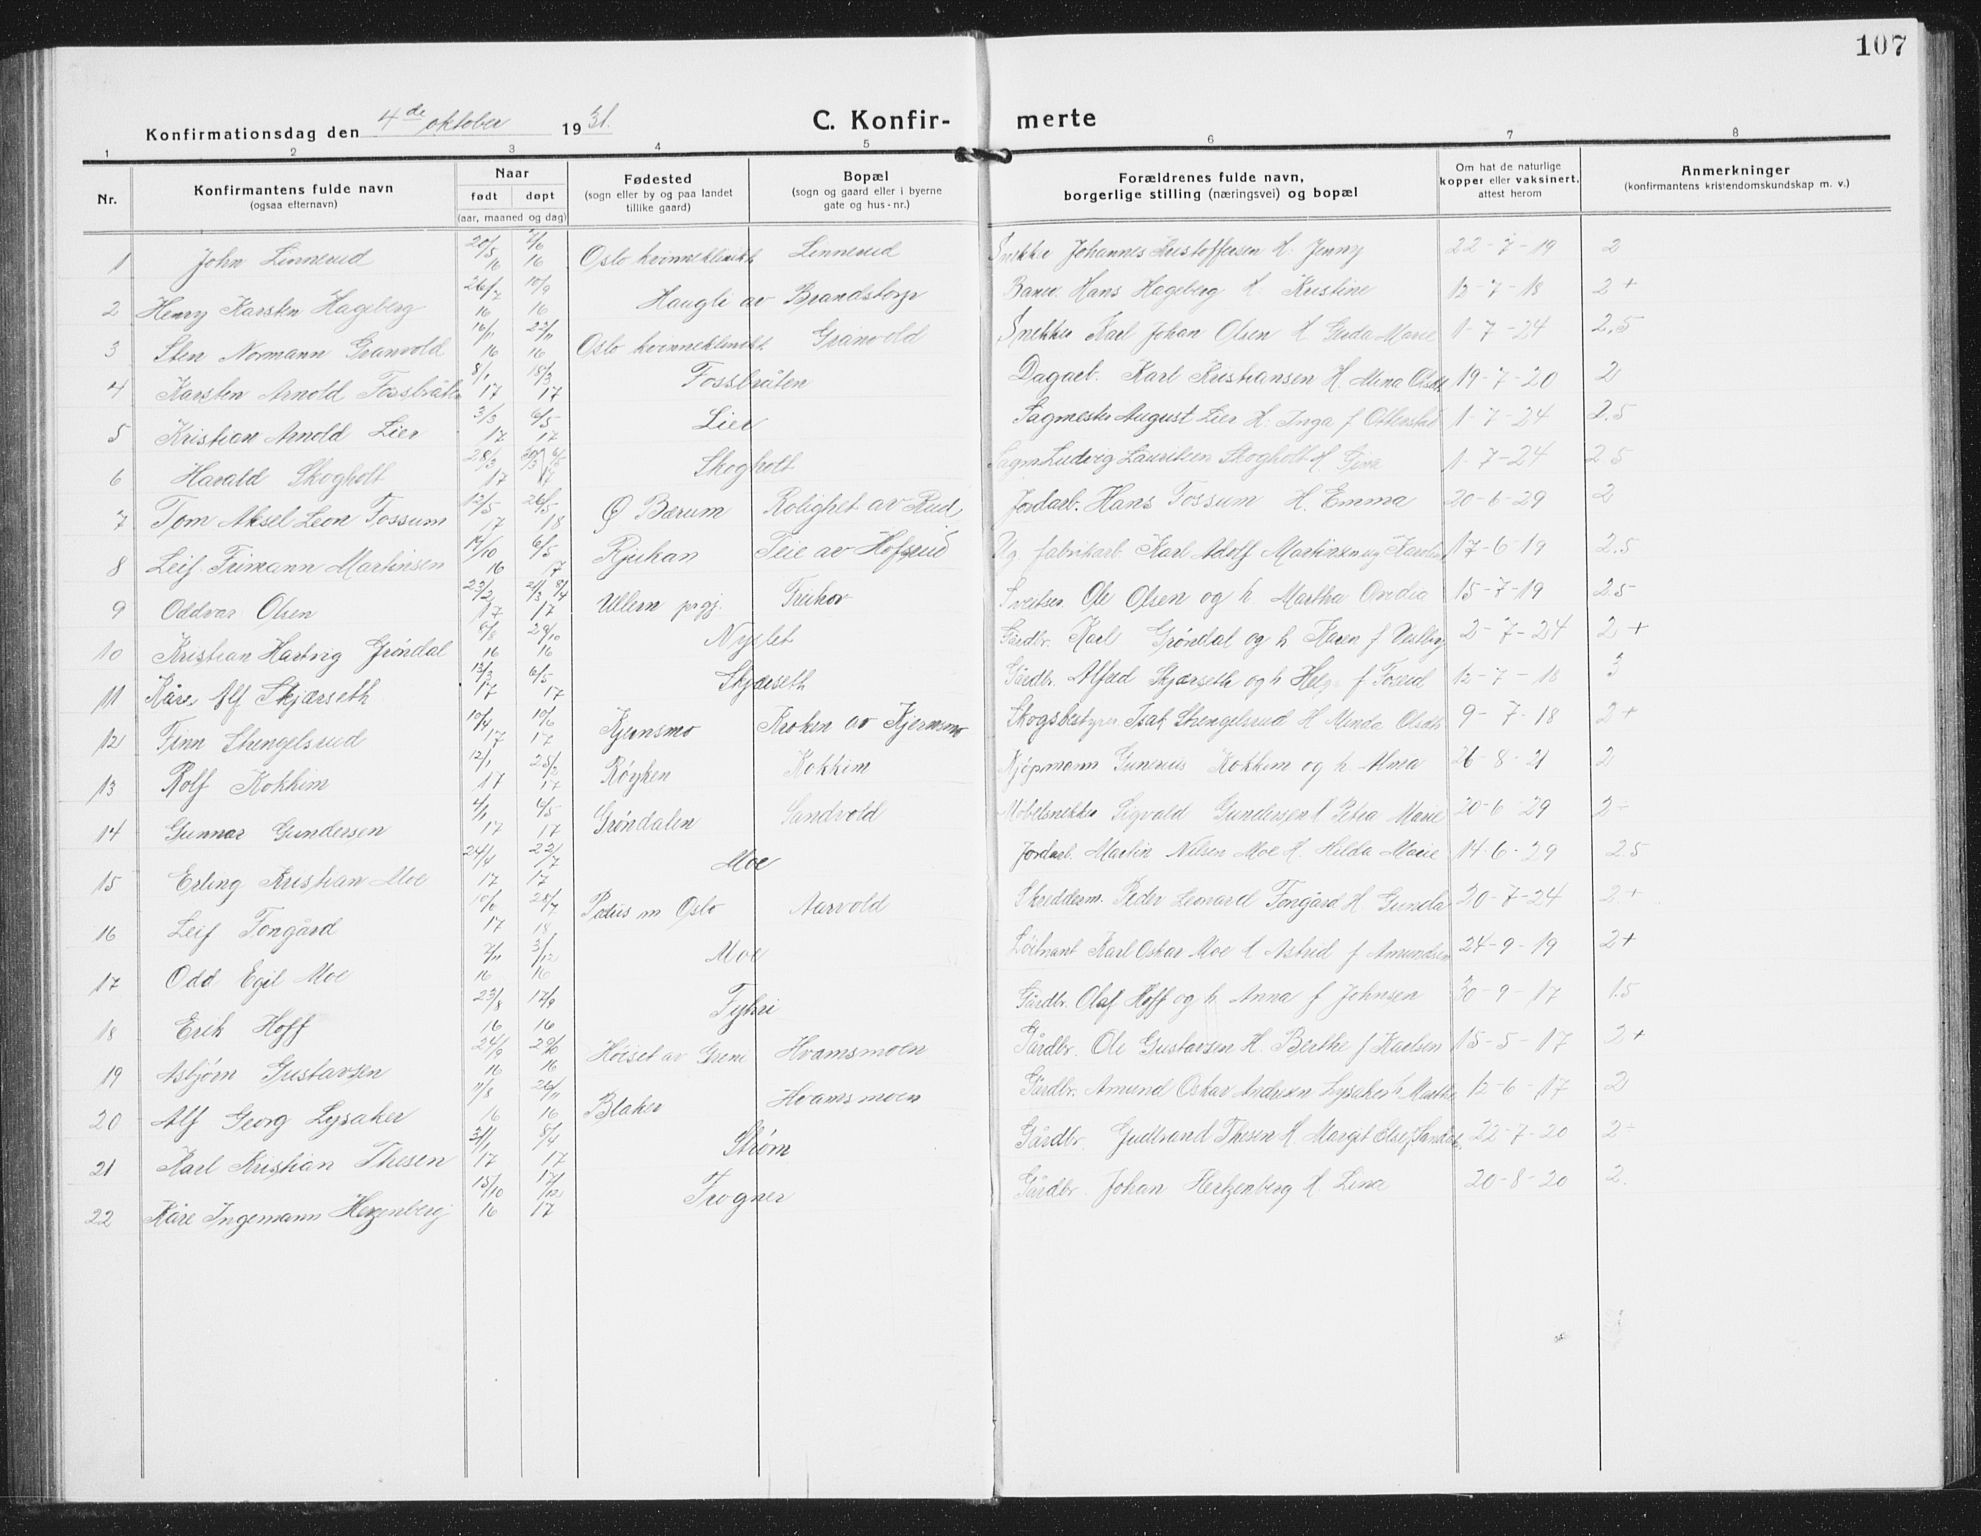 107
Konfirmationsdag den 4de oktober 1931. C. Konfirmerte
1 2 3 4 5 6 7 8
Nr. Konfirmantens fulde navn (ogsaa efternavn) Naar født døpt (aar, maaned og dag) Fødested (sogn eller by og paa landet tillike gaard) Bopæl (sogn og gaard eller i byerne gate og hus-nr.) Forældrenes fulde navn, borgerlige stilling (næringsvei) og bopæl Om hat de naturlige kopper eller vaksinert, attest herom Anmerkninger (konfirmantens kristendomskundskap m. v.)
1 John Linnerud 20/5 16 16 Oslo kvinneklinikk Linnerud Snekker Johannes Kristoffersen H. Jenny 22-7-19 2
2 Henry Karsten Hageberg 26/7 16 10/9 16 Haugli av Brandstorp Hans Hageberg H. Kristine 12-7-18 2+
3 Sten Normann Granvold 16/11 16 22/11 16 Oslo kvinneklinikk Granvold Snekker Karl Johan Olsen H Gerda Marie 1-7-24 2.5
4 Karsten Arnold Fossbråten 8/1 17 18/3 17 Fossbråten Dagarb. Karl Kristiansen H. Mina Olsdtr 19-7-20 2
5 Kristian Arnold Lier 3/3 17 6/5 17 Lier Sagmester August Lier H. Inga f Ottenstad 1-7-24 2.5
6 Harald Skogholt 28/3 17 17 Skogholt Ludvig Lauritsen Skogholt H. 1-7-24 2.5
7 Tom Aksel Leon Fossum 12/5 17 26/5 18 Ø Bærum Rolighet av Rud Jordarb. Hans Fossum H. Emma 20-6-29 2
8 Leif Frimann Martinsen 14/10 16 6/5 17 Rjukan Teie av Hofsrud Ug. fabrikarb. Karl Adolf Martinsen og Karoline 17-6-19 2.5
9 Oddvar Olsen 23/2 17 21/3 8/4 17 Ullern prgj. Fruhov Sveitser. Ole Olsen og h. Martha Ovidia 15-7-19 2.5
10 Kristian Hartvig Grøndal 16 29/10 16 Nyslet Gårdbr. Karl Grøndal og h Karen f 2-7-24 2+
11 Kåre Alf Skjærseth 13/3 17 6/5 17 Skjærseth Gårdbr. Alfred Skjærseth og h Helga f Foseid 12-7-18 3
12 Finn Strengelsrud 10/4 17 10/6 17 Kjensmo Kroken av Kjernsmo Skogsbestyrer Isak Strengelsrud H Minda Olsdtr 9-7-18 2+
13 Rolf Kokkim 12/1 17 25/2 17 Røyken Kokkim Kjøpmann Gunerius Kokkim og h. Alma 26-8-21 2
14 Gunnar Gundersen 4/1 17 6/5 17 Grøndalen Sandvold Møbelsnekker Sigvald Gundersen H Petra Marie 20-6-29 2÷
15 Erling Kristian Moe 24/4 17 22/7 17 Moe Jordarb. Martin Nilsen Moe H. Hilda Marie 14-6-29 2.5
16 Leif Tongård 17 28/7 18 Petrus m Oslo Aarvold Skredderm. Peder Leonard Tongård H Gunda 20-7-24 2+
17 Odd Egil Moe 7/11 16 3/12 16 Moe Løitnant Karl Oskar Moe H Astrid f Amundsen 24-9-19 2+
18 Erik Hoff 23/8 16 17/9 16 Fjøkri Gårdbr. Olaf Hoff og h. Anna f Johnsen 30-9-17 1.5
19 Asbjørn Gustavsen 24/9 16 29/10 16 Høiset av Grene Hvamsmoen Gårdbr. Ole Gustavsen H. Berthe f Karlsen 15-5-17 2+
20 Alf Georg Lysaker 11/8 16 26/11 16 Blaker Hvamsmoen Gårdbr. Amund Oskar Andersen Lysaker h Marthe 12-6-17 2
21 Karl Kristian Thesen 31/1 17 8/4 17 Strøm Gårdbr. Gudbrand Thesen H. Margit Else 22-7-20 2÷
22 Kåre Ingemann Herzenberg 15/10 16 17 Frogner Gårdbr. Johan Hertzenberg H. Lina 20-8-20 2.